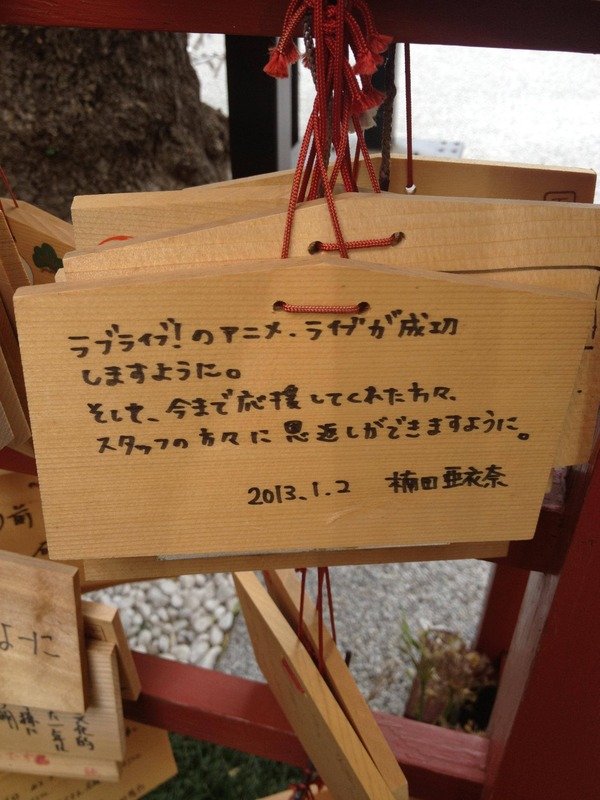 ラブライブ!のアニメ、ライブが成功
しますように。
そして、今まで応援してくれた方々、
スタッフの方々に恩返しができますように。
2013.1.2 楠田亜衣奈
の前
よーに